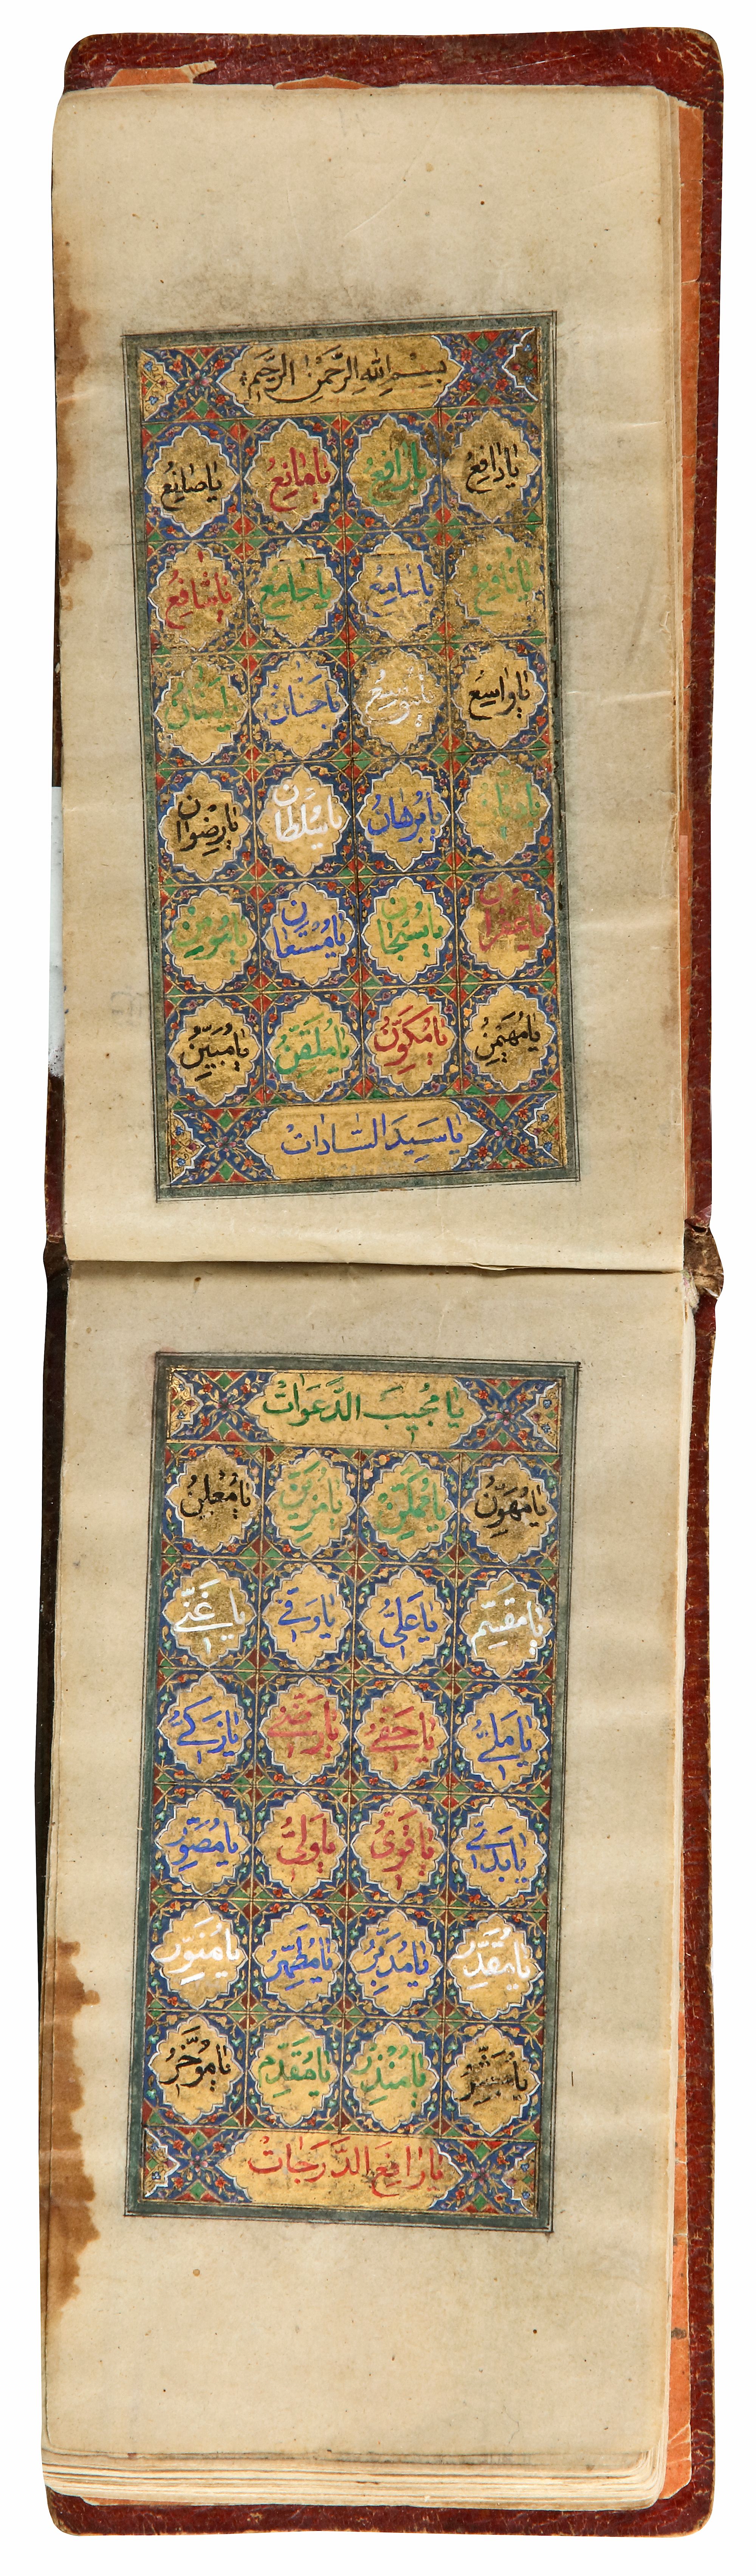 بِسْمِ اللهِ الرَّحْمٰنِ الرَّحِيمِ
يا دافِعُ يا رافِعُ يا مانِعُ يا صانِعُ
يا نافِعُ يا سامِعُ يا جامِعُ يا شافِعُ
يا واسِعُ يا مُوسِعُ يا حَنّانُ يا مَنّانُ
يا دَيّانُ يا بُرْهانُ يا سُلْطانُ يا رِضْوانُ
يا غُفْرانُ يا سُبْحانُ يا مُسْتَعانُ
يا مُهَيْمِنُ يا مُكَوِّنُ يا مُلَقِّنُ يا مُبَيِّنُ
يا سَيِّدَ السّاداتْ
يا مُجِيبَ الدَّعَواتْ
يا مُهَوِّنُ يا مُمَكِّنُ يا مُزَيِّنُ يا مُعْلِنُ
يا عَلِيُّ يا وَفِيُّ يا غَنِيُّ
يا مَلِيُّ يا حَفِيُّ يا رَضِيُّ يا زَكِيُّ
يا قَوِيُّ يا وَلِيُّ يا مُصَوِّرُ
يا مُقَدِّرُ يا مُدَبِّرُ يا مُطَهِّرُ يا مُنَوِّرُ
يا مُبَشِّرُ يا مُنْذِرُ يا مُقَدِّمُ يا مُؤَخِّرُ
يا رافِعَ الدَّرَجاتْ